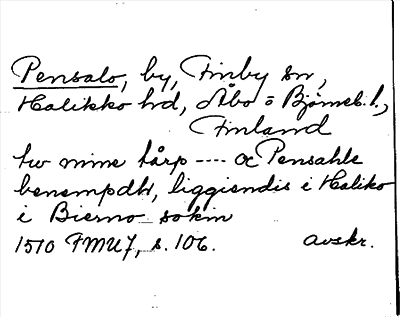 Pensalo, by, Finby sn,
Halikko hd, Åbo = Björneb. l.,
Finland
tw mine tårp ---- oc Pensahle
benempdh, liggiendis i Haliko
i Bierno sokin
1510 FMU 7, s. 106. avskr.